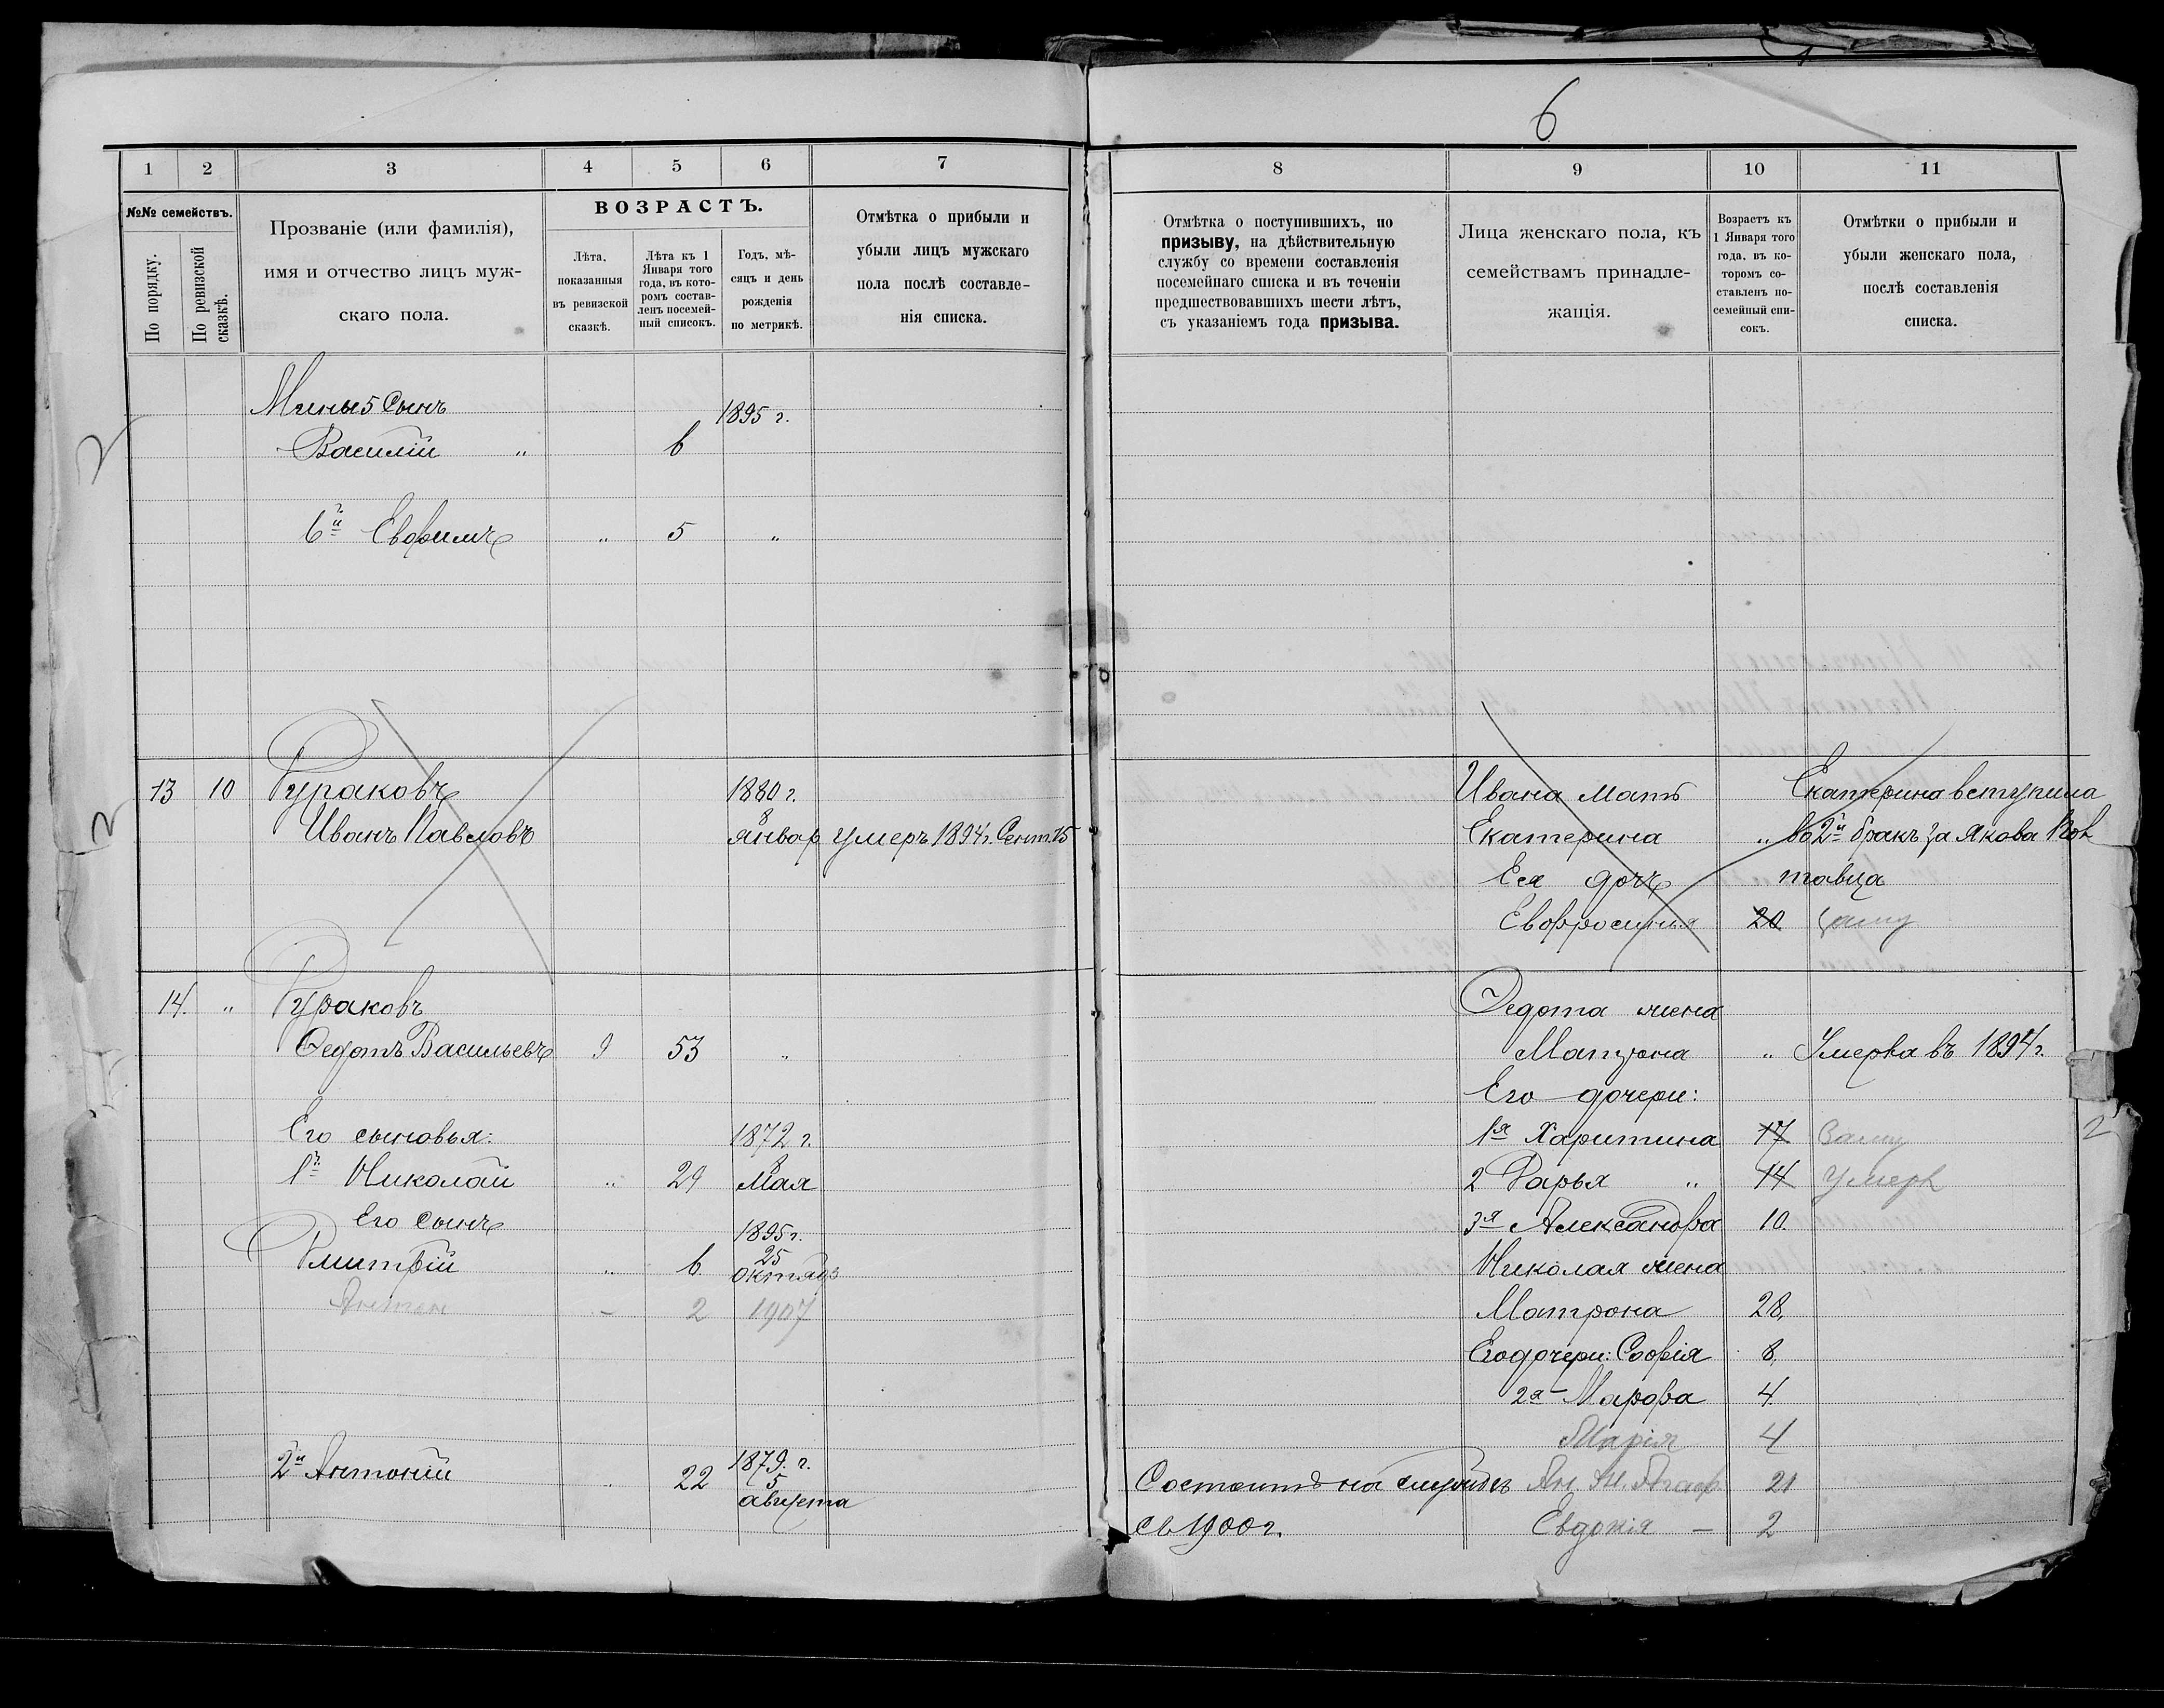 6
1 2 3 4 5 6 7
№№ семействъ.
По порядку.
По ревизской сказкѣ.
Прозваніе (или фамилія),
имя и отчество лицъ муж-
скаго пола.
ВОЗРАСТЪ.
Лѣта,
показанныя
въ ревизской
сказкѣ.
Лѣта къ 1
Января того
года, въ кото-
ромъ состав-
ленъ посемей-
ный списокъ.
Годъ, мѣ-
сяцъ и день
рожденія
по метрикѣ.
Отмѣтка о прибыли и
убыли лицъ мужскаго
пола послѣ составле-
нія списка.
Мины 5 Сынъ 1895 г.
Василій " 6
6й Евфимъ " 5 "
13 10 Дураковъ 1880 г.
8
Иванъ Павловъ январ умеръ 1894 г. Сент. 15
14. " Дураковъ
Федотъ Васильевъ 9 53 "
Его сыновья: 1872 г.
8
1й Николай " 29 Мая
Его сынъ 1895 г.
25
Дмитрій " 6. октяб
Антон - 2 1907
1879. г.
2й Антоній " 22 5
августа
8 9 10 11
Отмѣтка о поступившихъ, по
призыву, на дѣйствительную
службу со времени составленія
посемейнаго списка и въ теченіи
предшествовавшихъ шести лѣтъ,
съ указаніемъ года призыва.
Лица женскаго пола, къ
семействамъ принадле-
жащія.
Возрастъ къ
1 Января того
года, въ ко-
торомъ со-
ставленъ по-
семейный спи-
сокъ.
Отмѣтки о прибыли и
убыли женскаго пола,
послѣ составленія
списка.
Ивана мать Екатерина вступила
Екатерина " во 2й бракъ за Якова Пол
Ея дочь тавца
Евфросинья 20 Замуж
Федота жена
Матрона " Умерла въ 1894 г.
Его дочери:
1я Харитина 17 Замуж
2 Дарья " 14 Умерл
3я Александра 10.
Николая жена
Матрона 28.
Его дочери: Софія 8.
2я Марфа 4.
Марія 4
Состоитъ на службѣ Ан. ж. Агаф. 21
съ 1900 г. Евдокія - 2